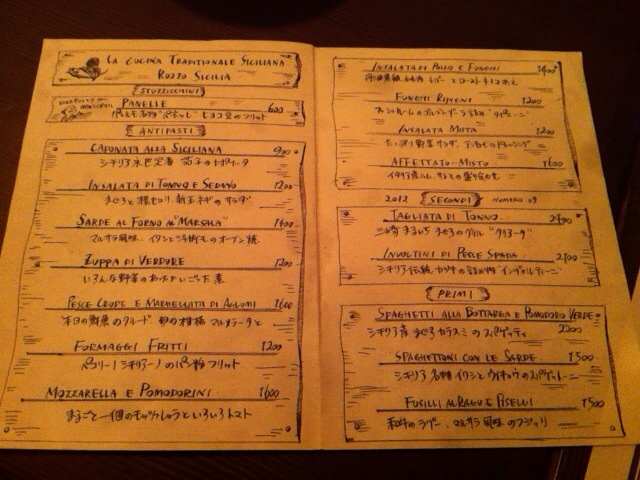 LA CUCINA TRADITIONALE SICILIANA
ROZZO SICILIA
STUZZICHINI
PANELLE 600
パレルモ名物 "パネッレ" ヒヨコ豆のフリット
ANTIPASTI
CAPONATA ALLA SICILIANA 900
シチリア 茄子のカポナータ
INSALATA DI TONNO E SEDANO 1200
まぐろと根セロリ 新玉ネギのサラダ
SARDE AL FORNO AL "MARSALA" 1400
マルサラ風味 イワシと のオーブン焼
ZUPPA DI VERDURE 1200
いろんな野菜のあったかいごった煮
PESCE CRUDE E MARMELLATA DI AGLUMI 1600
本日の鮮魚のクルード 旬の柑橘マルメラータと
FORMAGGI FRITTI 1200
ペコリーノシチリアーノのパン粉フリット
MOZZARELLA E POMODORINI 1600
まるごと一個のモッツァレラといろいろトマト
INSALATA DI POLLO E FUNGHI 1400
レバーとロースト
FUNGHI RIPIENI 1200
マッシュルームの
INSALATA MISTA 1200
たっぷり野菜サラダ のドレッシング
AFFETTATO MISTO 1600
イタリア産ハム、サラミの盛り合わせ
2012 SECONDI NUMERO 09
TAGLIATA DI TONNO 2400
三崎 まるいち まぐろのグリル "タリアータ"
INVOLTINI DI PESCE SPADA 2100
シチリア伝統 カジキの "インヴォルティーニ"
PRIMI
SPAGHETTI ALLA BOTTARGA E POMODORO VERDE
シチリア産 まぐろカラスミのスパゲッティ 2200
SPAGHETTONI CON LE SARDE 1500
シチリア名物 イワシとウイキョウのスパゲットーニ
FUSILLI AL RAGU E PISELLI 1500
和牛のラグー、マルサラ風味のフジッリ